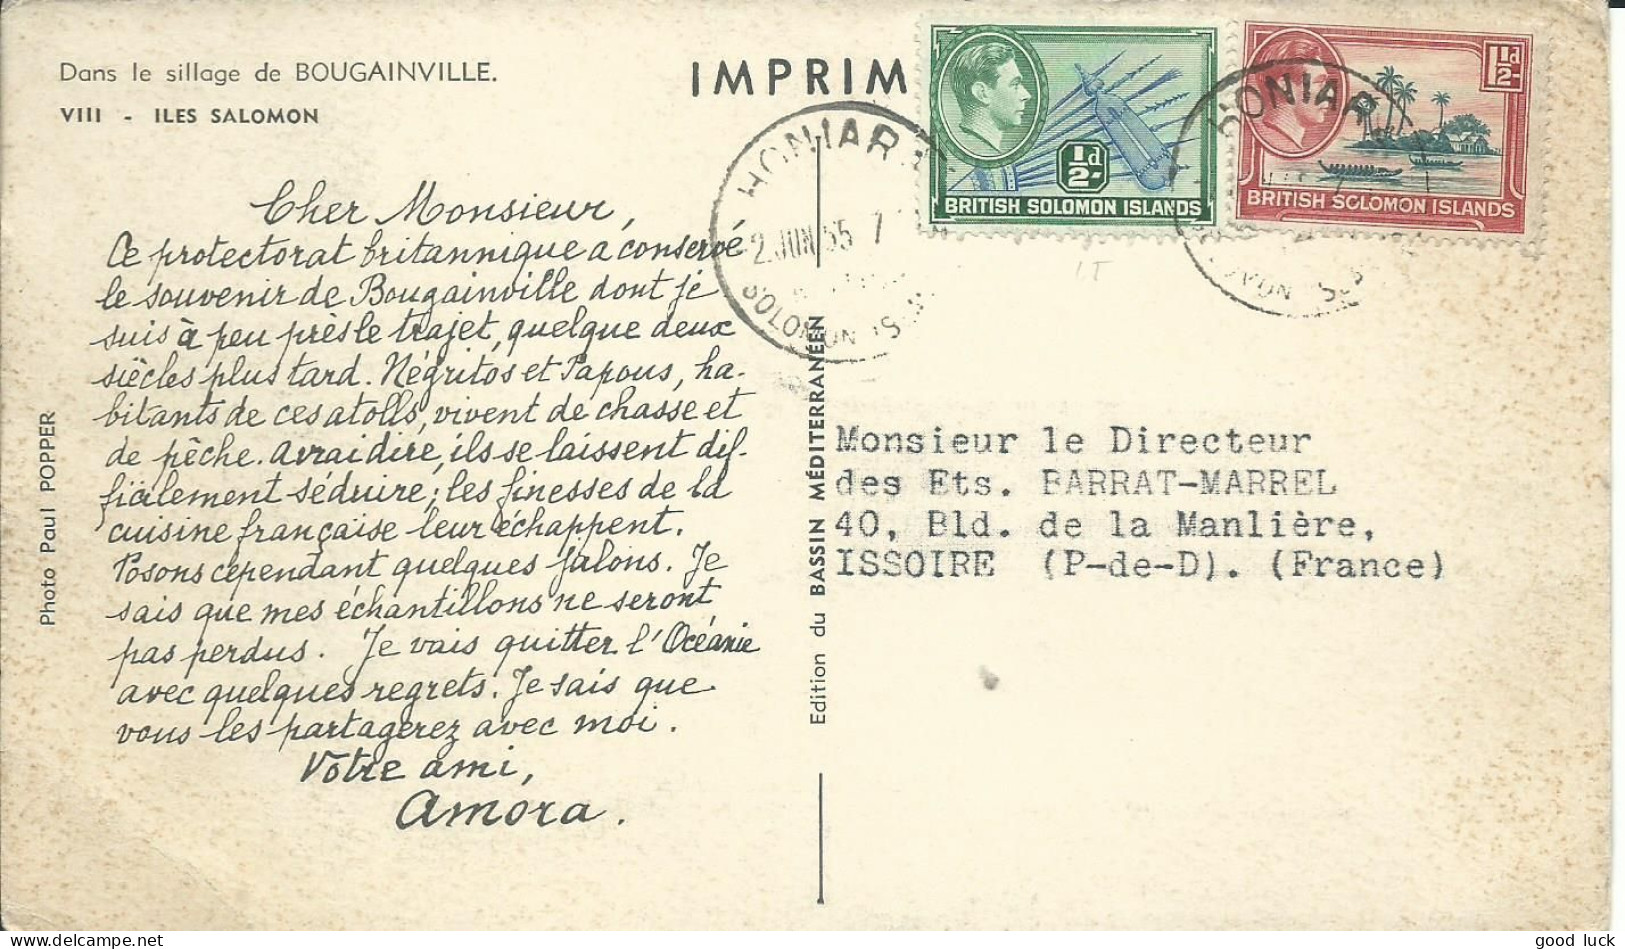 Dans le sillage de BOUGAINVILLE.
VIII - ILES SALOMON
IMPRIM
Cher Monsieur,
Ce protectorat britannique a conservé
le souvenir de Bougainville dont je
suis à peu près le trajet, quelque deux
siècles plus tard. Négritos et Papous, ha-
bitants de ces atolls, vivent de chasse et
de pêche. A vrai dire, ils se laissent dif-
ficilement séduire; les finesses de la
cuisine française leur échappent.
Posons cependant quelques jalons. Je
sais que mes échantillons ne seront
pas perdus. Je vais quitter l'Océanie
avec quelques regrets. Je sais que
vous les partagerez avec moi.
Votre ami,
Amora.
Photo Paul POPPER
Edition du BASSIN MÉDITERRANÉEN
HONIARA
2 JUN 55
SOLOMON IS
1/2d
BRITISH SOLOMON ISLANDS
1 1/2d
BRITISH SOLOMON ISLANDS
HONIAR
IT
Monsieur le Directeur
des Ets. BARRAT-MARREL
40, Bld. de la Manlière,
ISSOIRE (P-de-D). (France)
good luck